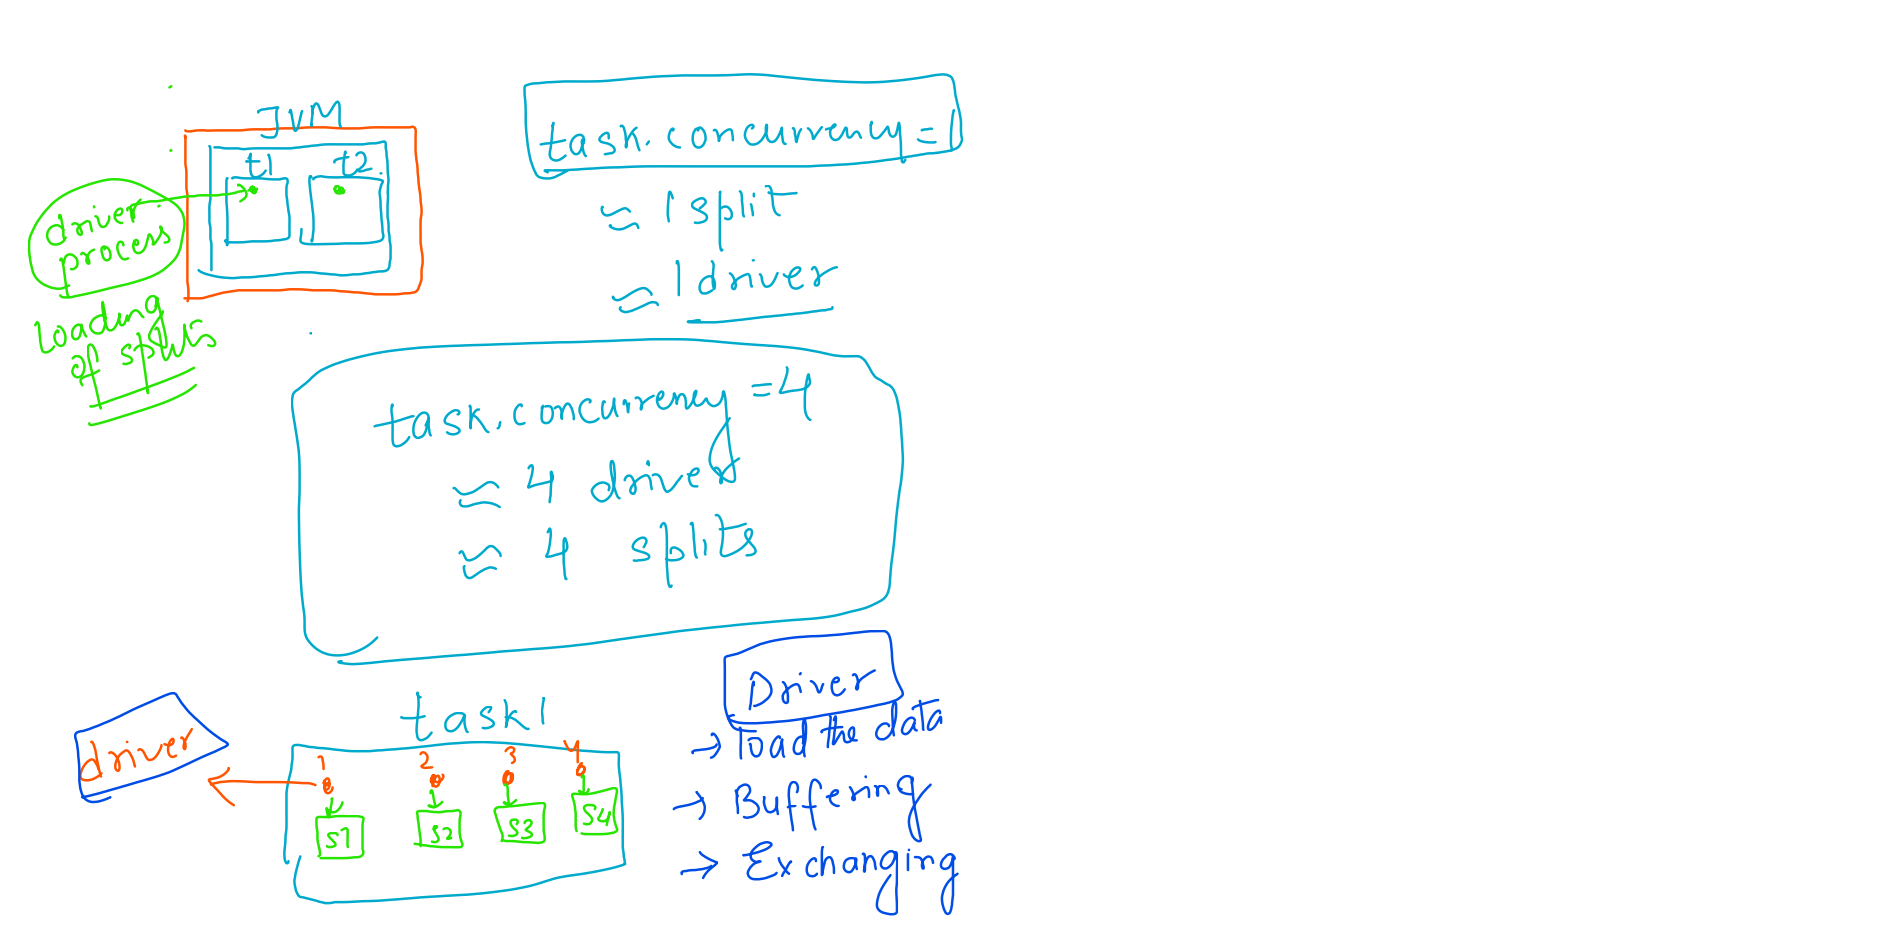 JVM
t1 t2
driver
process
loading
of splits
task.concurrency = 1
≈ 1 split
≈ 1 driver
task.concurrency = 4
≈ 4 drives
≈ 4 splits
task 1
1 2 3 4
S1 S2 S3 S4
driver
Driver
→ load the data
→ Buffering
→ Exchanging